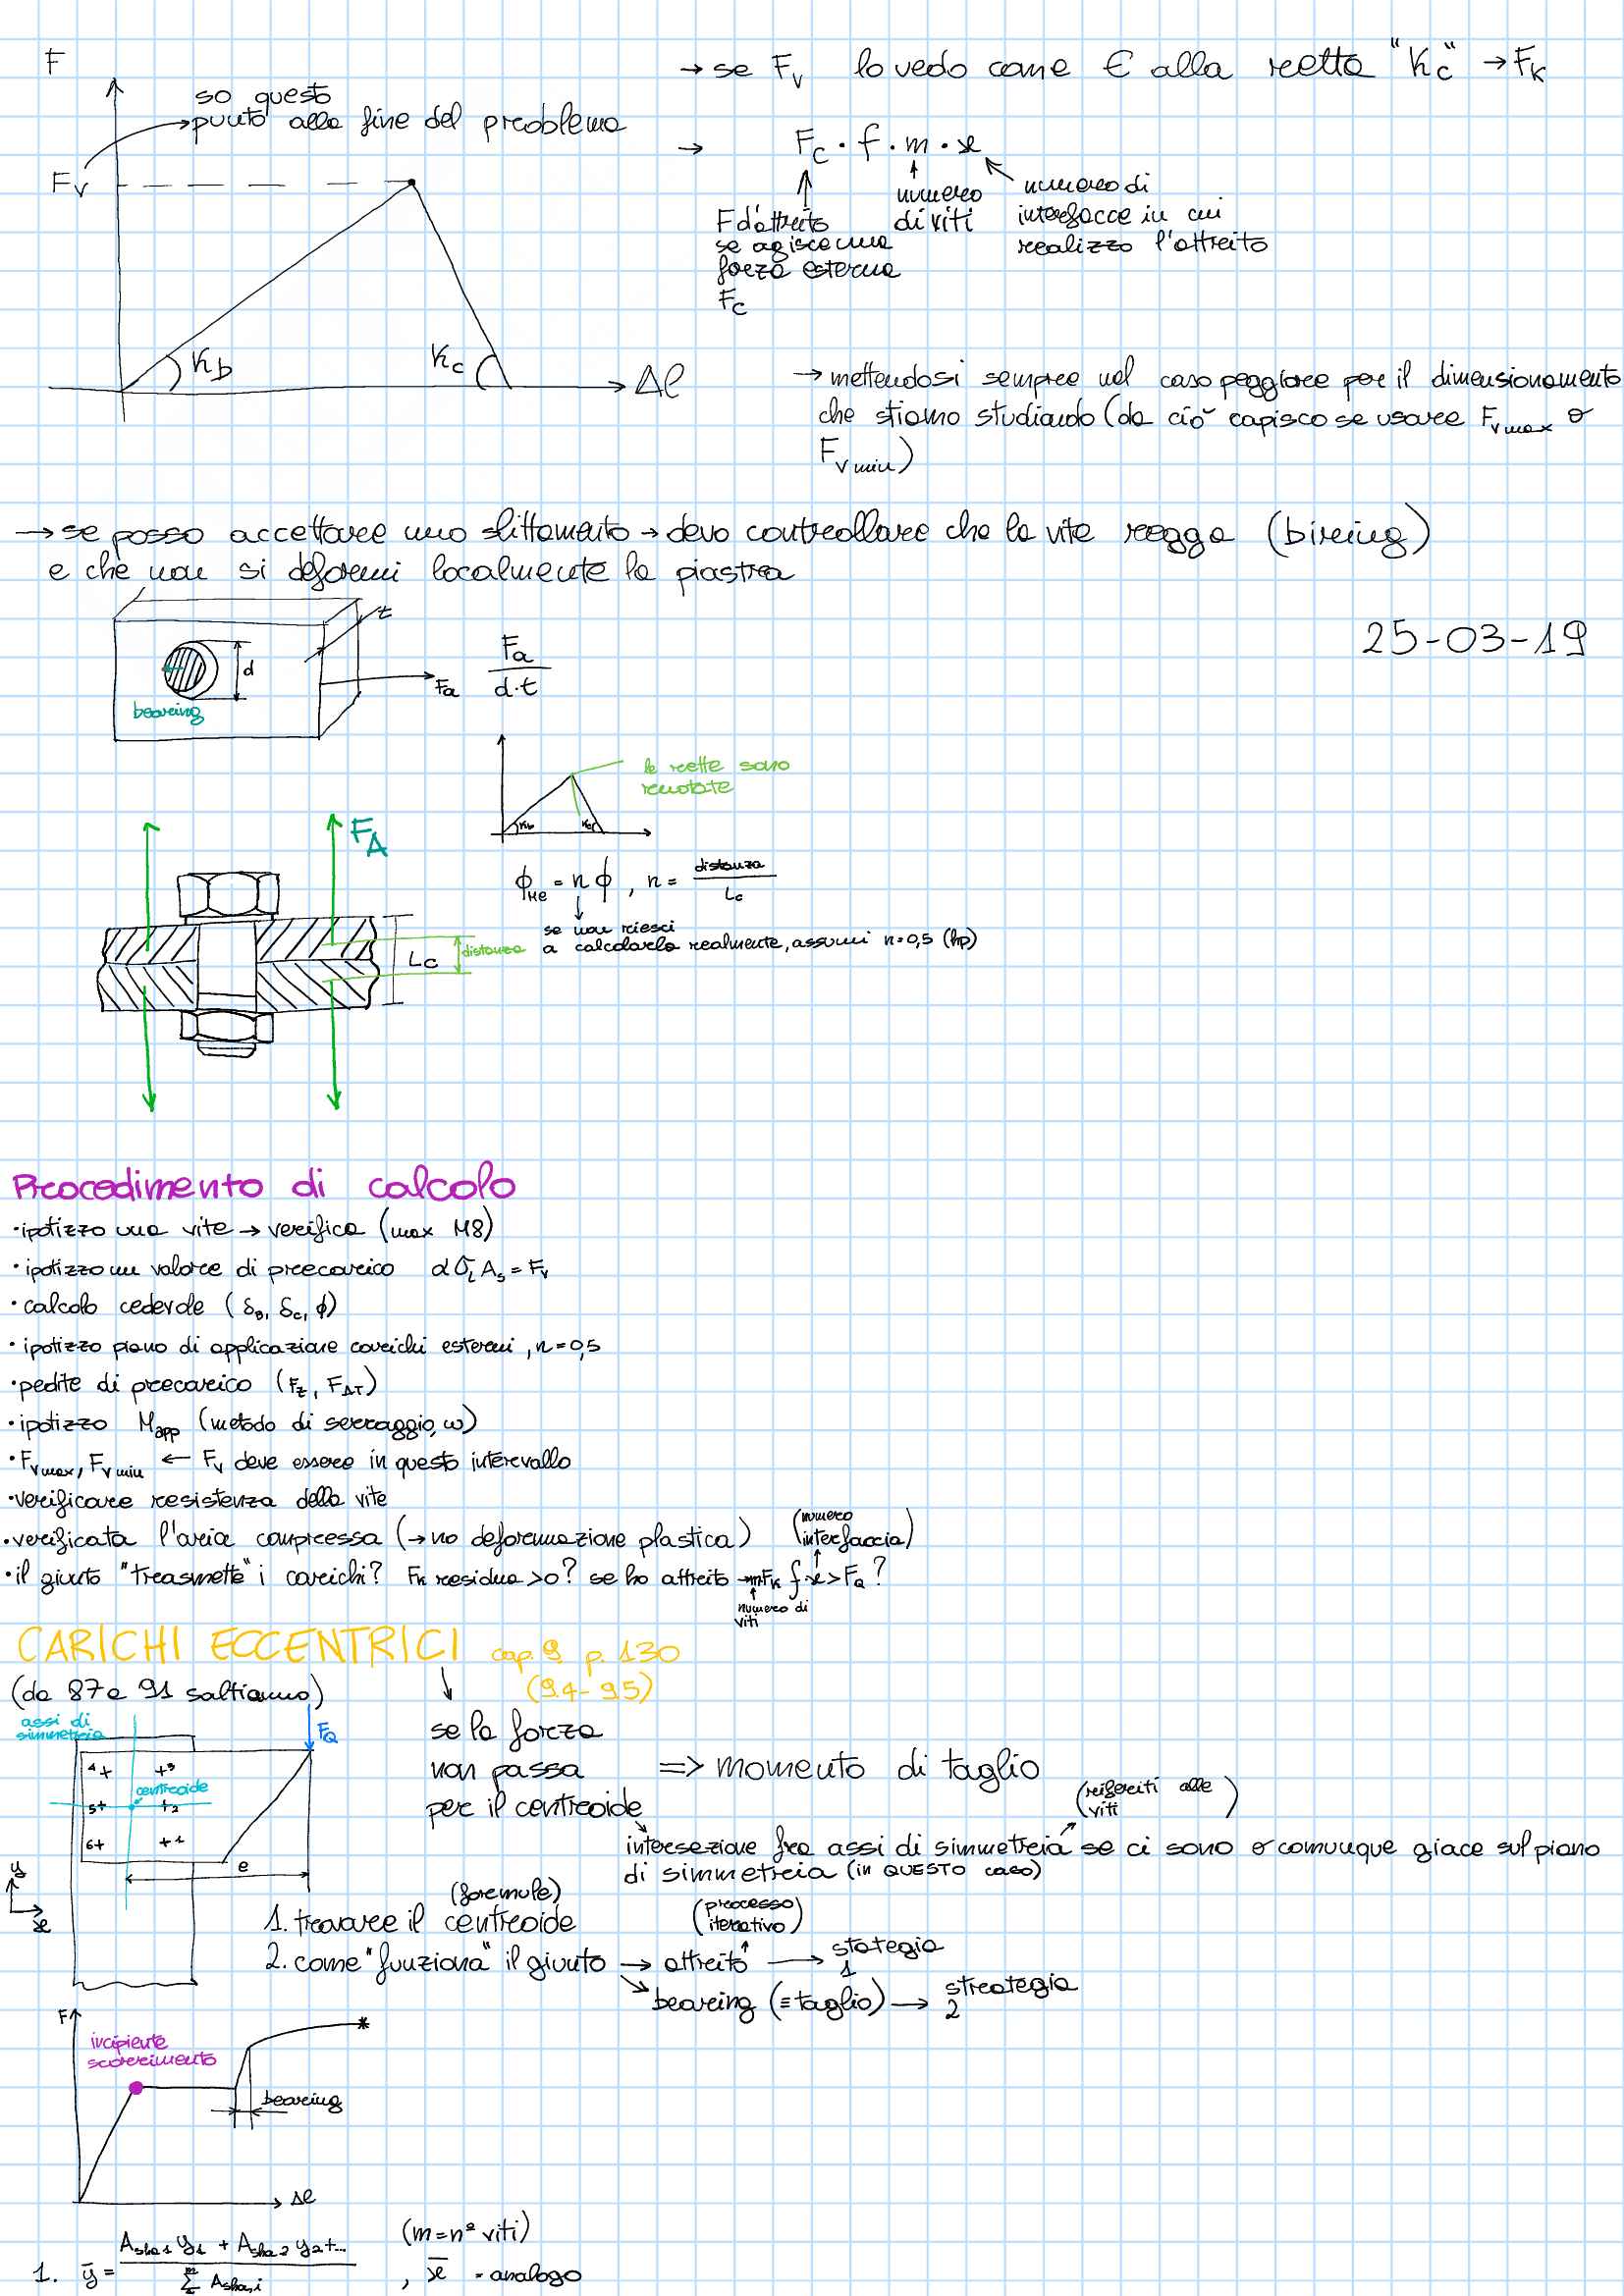 F
so questo
punto alla fine del problema
F_V
K_b
K_c
Δl
→ se F_V lo vedo come ∈ alla retta "K_C" → F_K
→ F_C · f · m · x
F d'attrito
se agisce una
forza esterna
F_C
numero
di viti
numero di
interfacce in cui
realizzo l'attrito
→ mettendosi sempre nel caso peggiore per il dimensionamento
che stiamo studiando (da ciò capisco se usare F_Vmax o
F_Vmin)
→ se posso accettare uno slittamento → devo controllare che la vite regga (bireing)
e che non si deformi localmente la piastra
25-03-19
t
d
bearing
Fa
Fa
d·t
le rette sono
ruotate
K_b
K_c
F_A
ϕ_Ke = n ϕ , n = distanza
L_C
se non riesci
a calcolarlo realmente, assumi n=0,5 (hp)
L_C
distanza
Procedimento di calcolo
· ipotizzo una vite → verifica (max M8)
· ipotizzo un valore di precarico α σ_L A_s = F_V
· calcolo cedevole (δ_B, δ_C, ϕ)
· ipotizzo piano di applicazione carichi esterni, n=0,5
· pedite di precarico (F_Z, F_ΔT)
· ipotizzo M_app (metodo di serraggio, ω)
· F_Vmax, F_Vmin ← F_V deve essere in questo intervallo
· verificare resistenza della vite
· verificata l'aria compressa (→ no deformazione plastica)
(numero
interfaccia)
· il giunto "trasmette" i carichi? F_K residua >0? se ho attrito → m F_K f·x > F_Q?
numero di
viti
CARICHI ECCENTRICI cap. 9 p. 130
(9.4-9.5)
(da 87 a 91 saltiamo)
assi di
simmetria
F_Q
4+ +3
centroide
5+ +2
6+ +1
e
y
x
se la forza
non passa
per il centroide
=> momento di taglio
(riferiti alle
viti)
intersezione fra assi di simmetria se ci sono o comunque giace sul piano
di simmetria (in QUESTO caso)
(formule)
1. trovare il centroide
(processo
iterativo)
2. come "funziona" il giunto → attrito → stategia
1
bearing (≡ taglio) → strategia
2
F
incipiente
scorrimento
bearing
Δl
1. ȳ = A_sha1 y_1 + A_sha2 y_2 + ...
Σ^m A_sha,i
(m = nº viti)
, x̄ = analogo